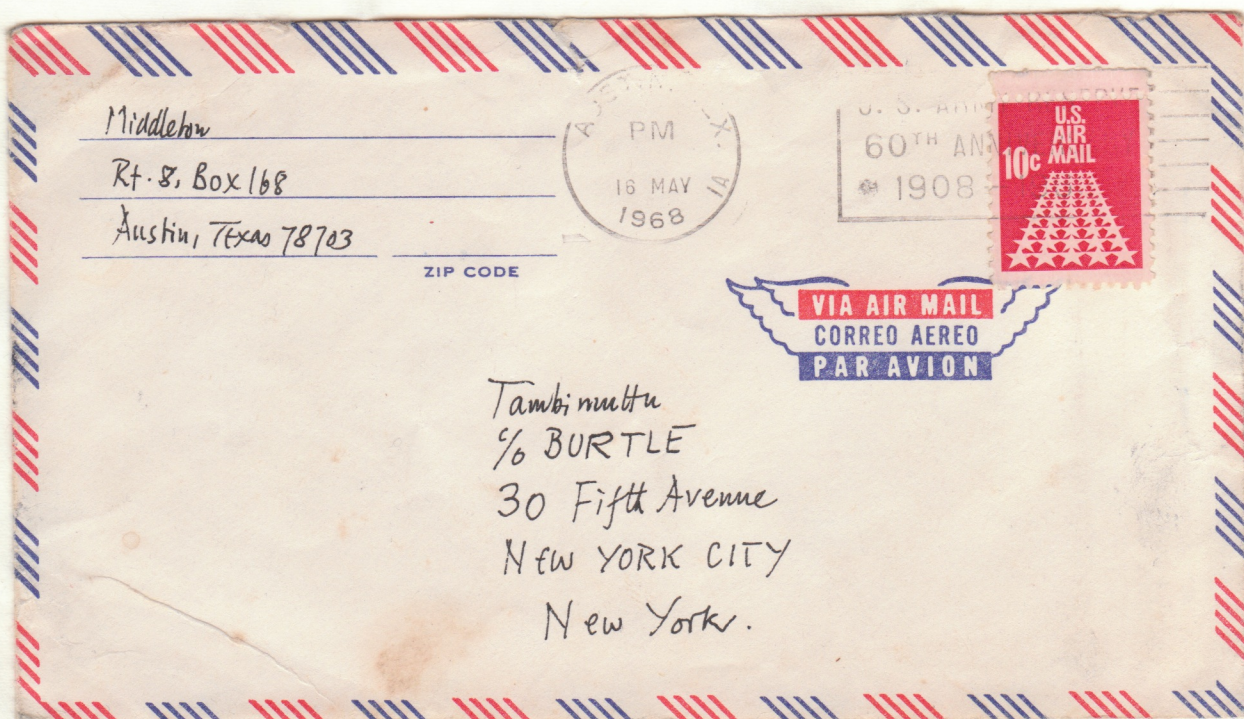 Middleton
Rt. 8, Box 168
Austin, Texas 78703
ZIP CODE
AUSTIN, TEX.
PM
16 MAY
1968
1A
U. S. ARMY RESERVE
60TH ANN
1908 -
U.S.
AIR
MAIL
10c
VIA AIR MAIL
CORREO AEREO
PAR AVION
Tambimuttu
c/o BURTLE
30 Fifth Avenue
New YORK CITY
New York.